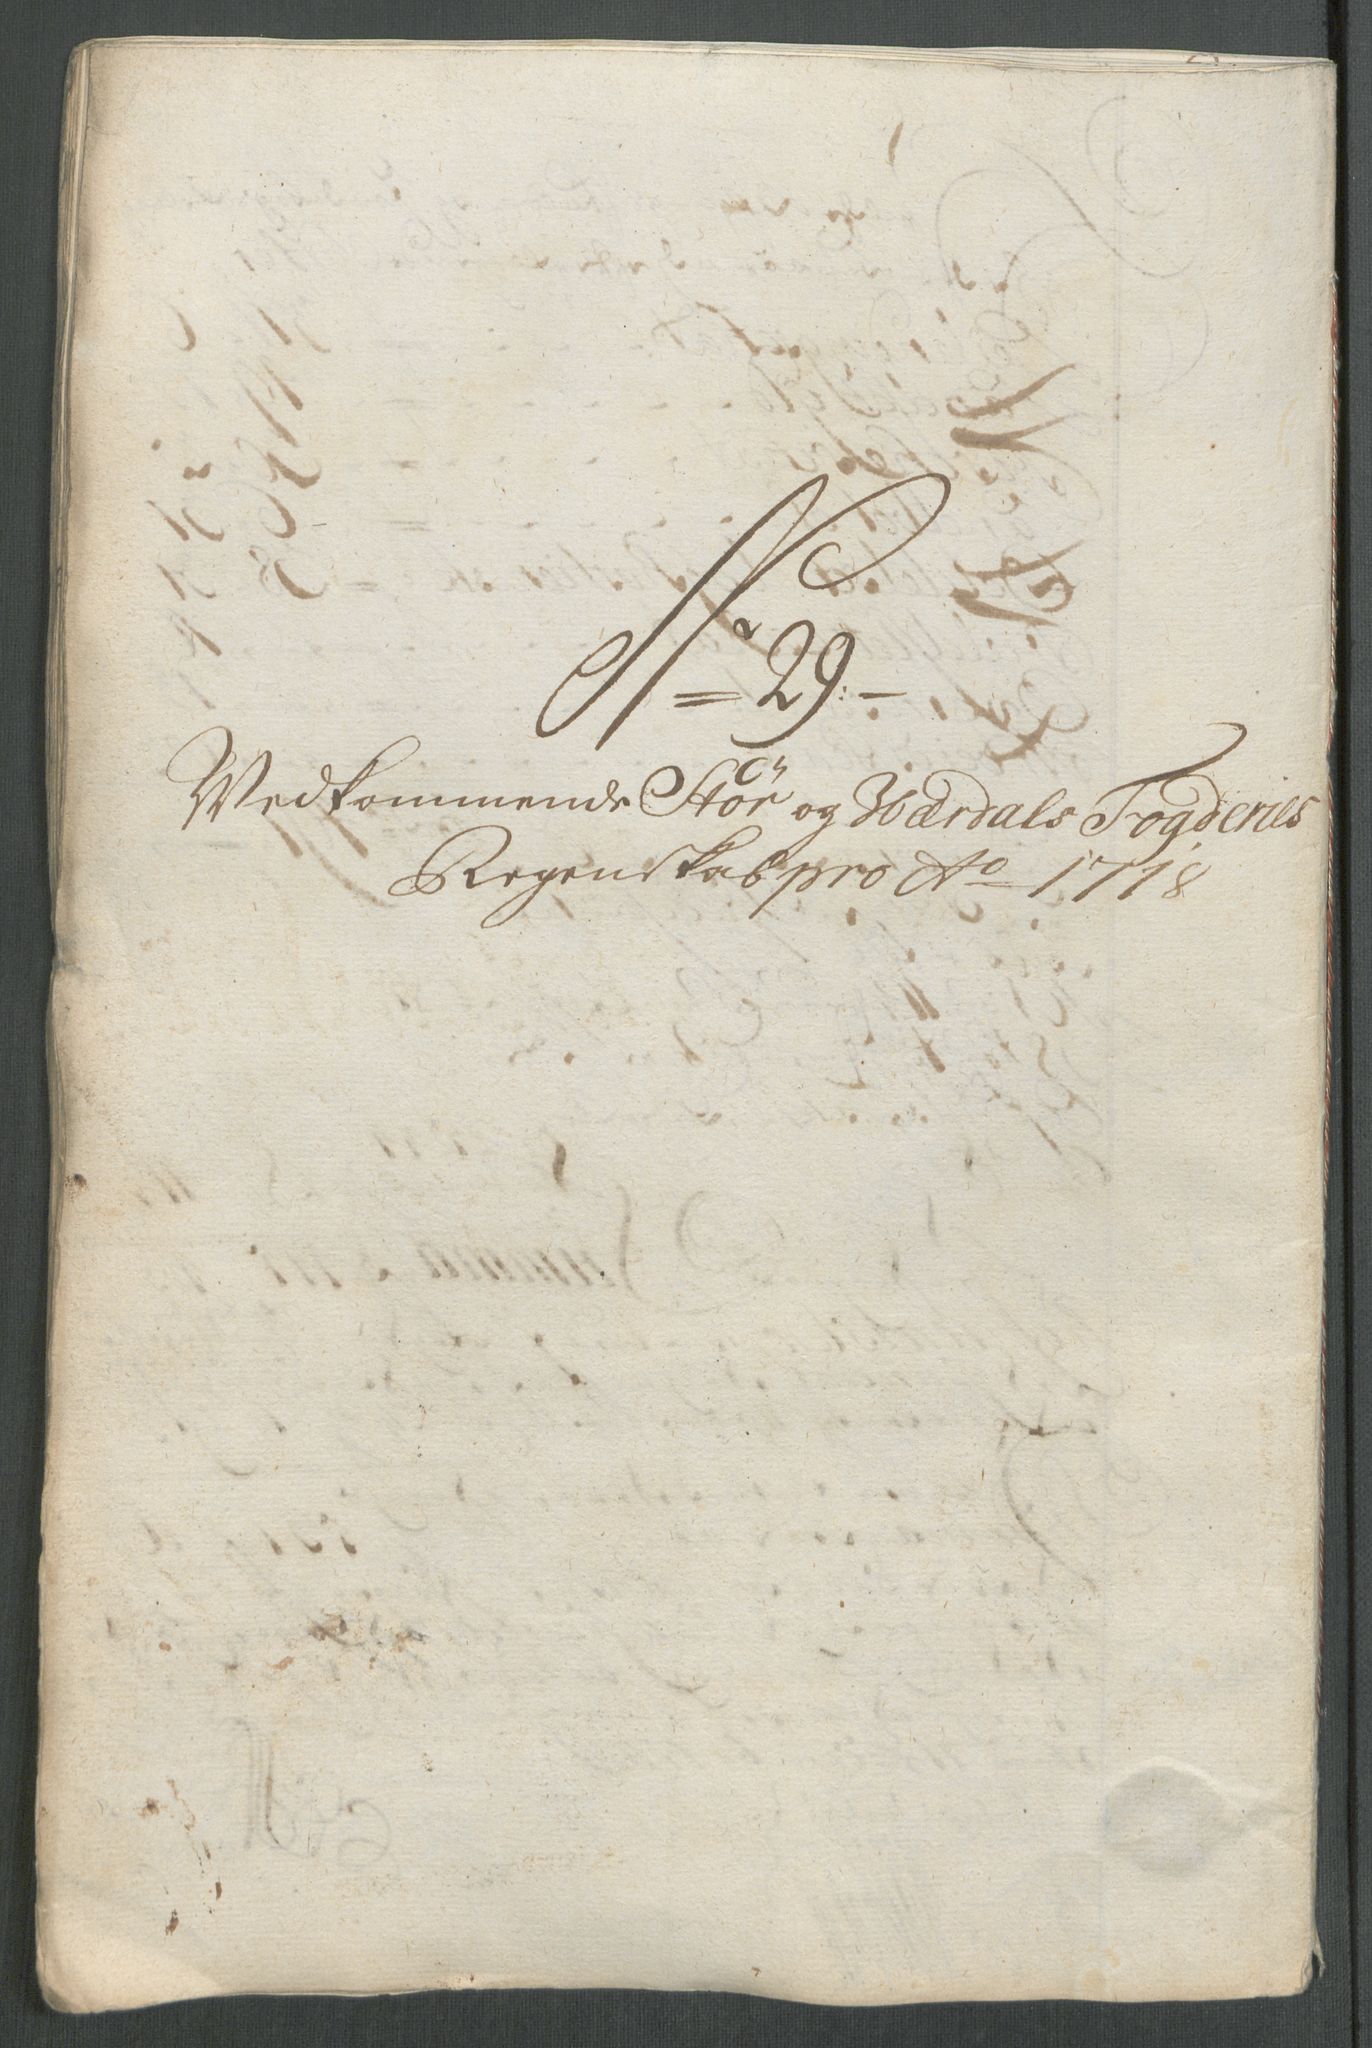 No 29.
Wedkommende Stör og Værdals Fogderies
Regenskab pro Ao 1718